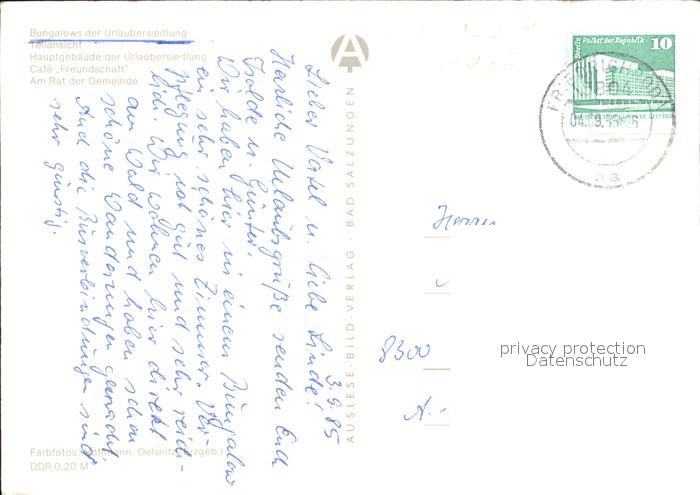 Bungalows der Urlaubersiedlung
Teilansicht
Hauptgebäude der Urlaubersiedlung
Café „Freundschaft"
Am Rat der Gemeinde
3.9.85
Lieber Vati u. liebe Linde!
Herzliche Urlaubsgrüße senden Euch
Isolde u. Günter.
Wir haben hier in einem Bungalow
ein sehr schönes Zimmer. Ver-
pflegung ist gut und sehr reich-
lich. Wir wohnen hier direkt
am Wald und haben schon
schöne Wanderungen gemacht.
Auch die Busverbindungen sind
sehr günstig.
Farbfotos: Hoffmann, Oelsnitz (Erzgeb.)
DDR 0,20 M
AUSLESE BILD-VERLAG · BAD SALZUNGEN
Berlin Palast der Republik 10
04.09.85
aa
Herrn
8300
privacy protection
Datenschutz